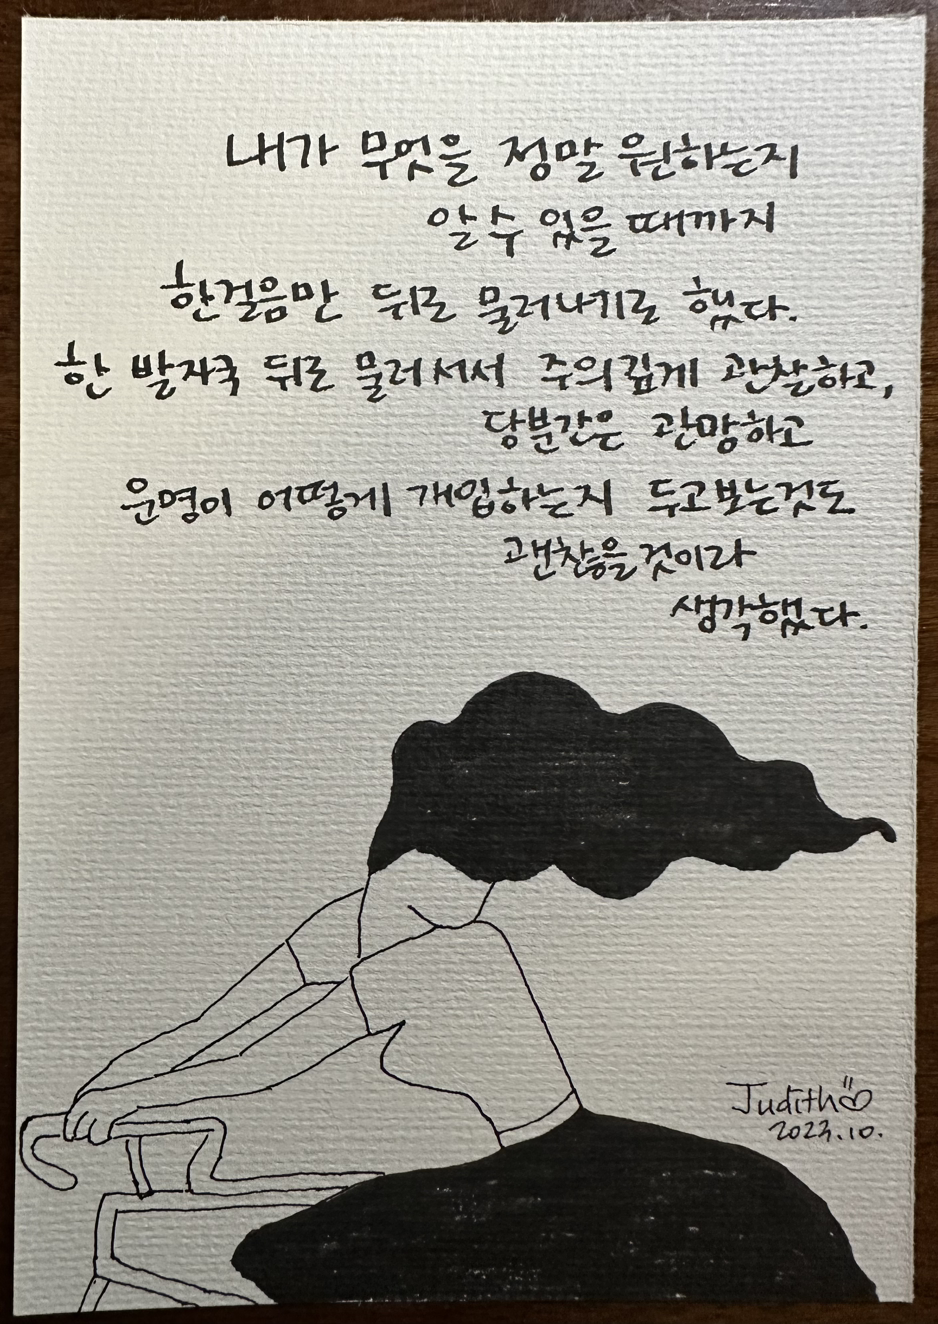 내가 무엇을 정말 원하는지
알 수 없을 때까지
한걸음만 뒤로 물러나기로 했다.
한 발자국 뒤로 물러서서 주의깊게 관찰하고,
당분간은 관망하고
운명이 어떻게 개입하는지 두고보는것도
괜찮을것이라
생각했다.
Judith
2023.10.